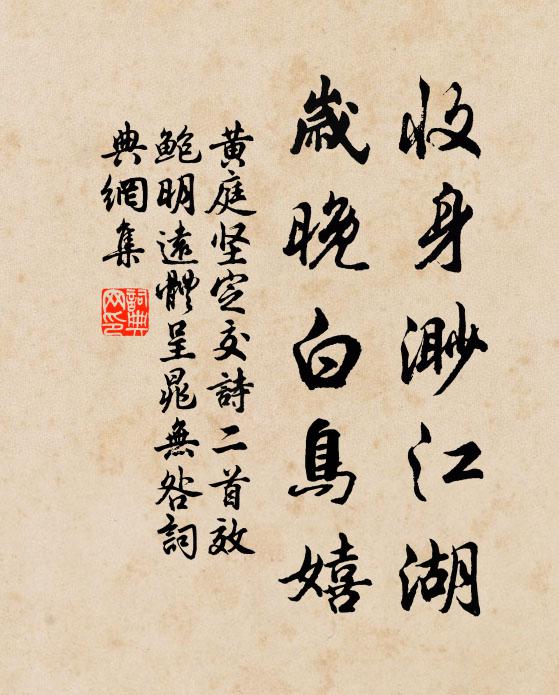 收身渺江湖
歲晚白鳥嬉
黃庭堅定交詩二首效
鮑明遠體呈晁無咎詞
典網集
詞典
网印